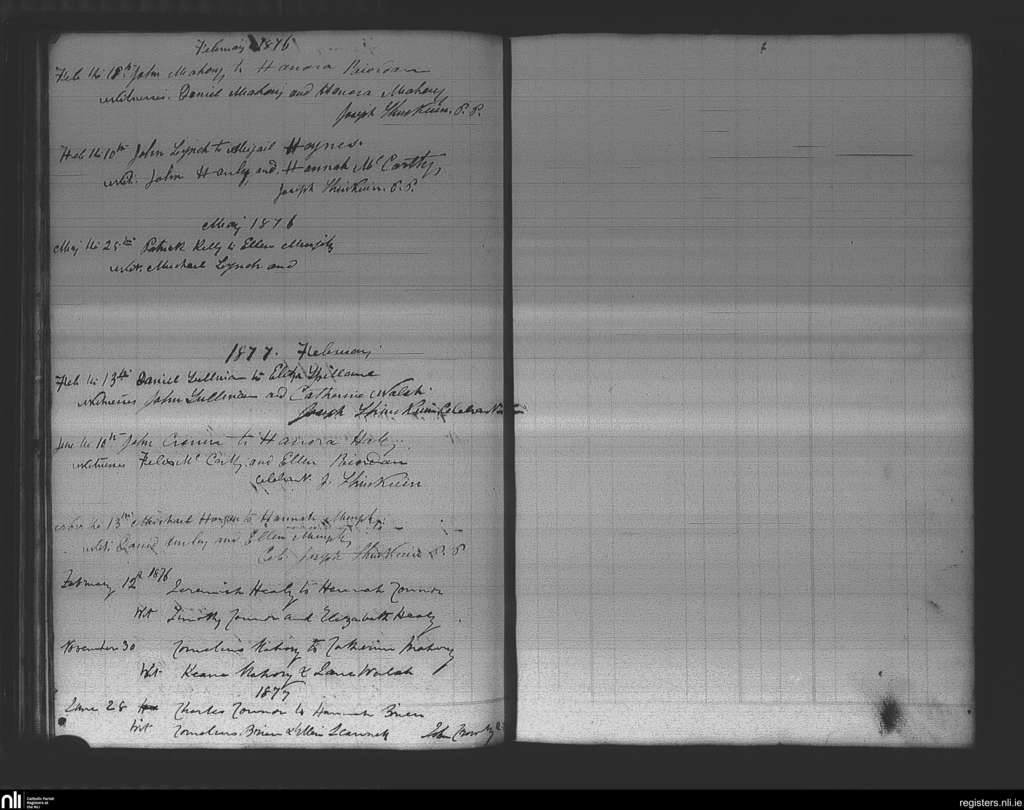 February 1876
Feb the 18th John Mahony to Hanora Riordan
witnesses. Daniel Mahony and Honora Mahony
Joseph P.P.
Feb the 10th John Lynch to Abigail Haynes
wit. John Hanly and Hannah McCarthy
Joseph P.P.
May 1876
May the 25th Patrick Kelly to Ellen Murphy
wit. Michael Lynch and
1877. February
Feb the 13th Daniel Sullivan to Eliza Spillane
witnesses John Sullivan and Catherine Walsh
Joseph Celebrant
June the 10th John Cronin to Hanora
witnesses McCarthy and Ellen Riordan
Celebrant. J.
Nov the 13th Michael to Hannah Murphy
wit. David and Ellen Murphy
Joseph P.P.
February 12th 1876 Jeremiah Healy to Hannah Connor
Wit Timothy Connor and Elizabeth Healy
November 30 Cornelius Mahony to Catherine Mahony
Wit Keane Mahony & Jane Walsh
1877
June 28 Charles Connor to Hannah Brien
Wit Cornelius Brien & Ellen John
nli
Catholic Parish
Registers at
the NLI
registers.nli.ie